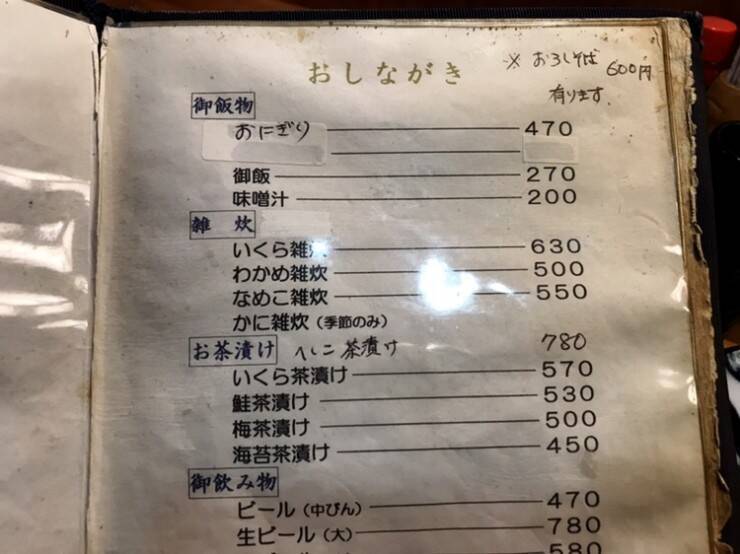 おしながき
※ おろしそば 600円
有ります。
御飯物
おにぎり 470
御飯 270
味噌汁 200
雑 炊
いくら雑炊 630
わかめ雑炊 500
なめこ雑炊 550
かに雑炊(季節のみ)
お茶漬け へしこ茶漬け 780
いくら茶漬け 570
鮭茶漬け 530
梅茶漬け 500
海苔茶漬け 450
御飲み物
ビール(中びん) 470
生ビール(大) 780
580